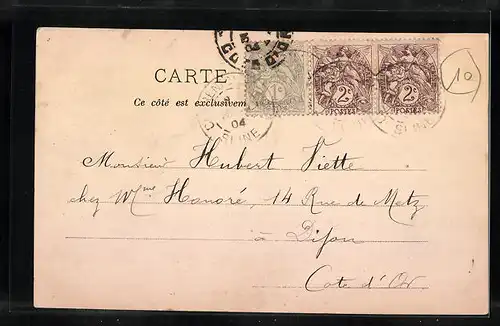 CARTE
Ce côté est exclusivem
1c
2c
2c
POSTES
POSTES
04
04
SEINE
10
Monsieur Hubert Viette
chez Mme Honoré, 14 Rue de Metz
à Dijon
Cote d'Or